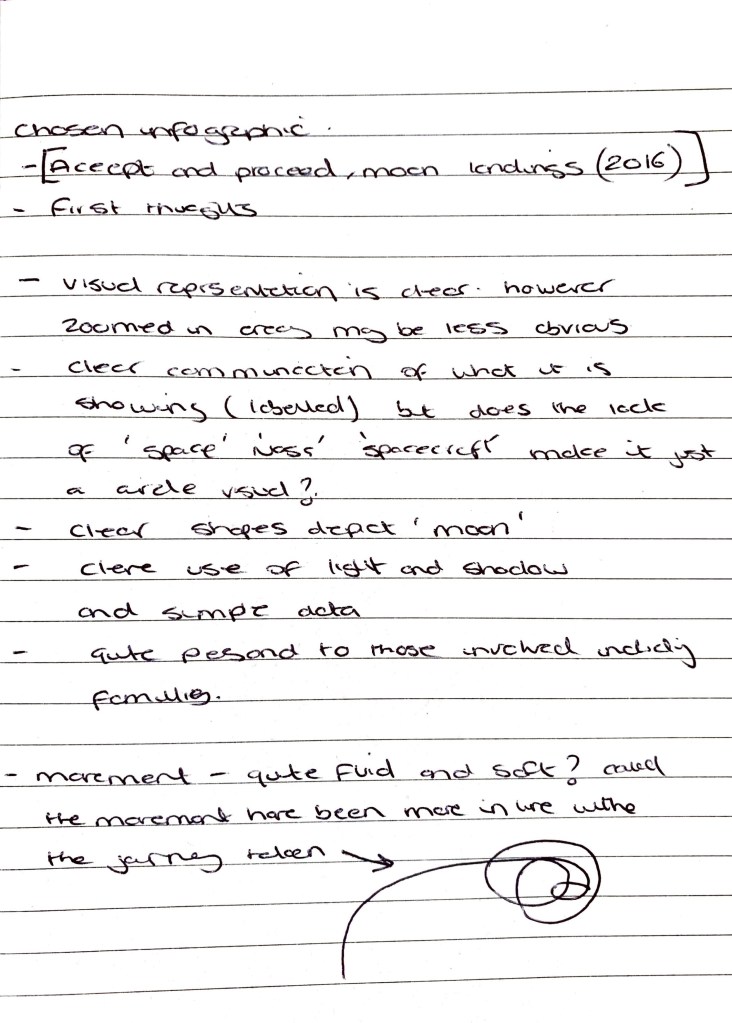 chosen infographic.
- [Accept and proceed, moon landings (2016)]
- First thoughts
- visual representation is clear. however
zoomed in areas may be less obvious
- clear communication of what it is
showing (labelled) but does the lack
of 'space' 'Nasa' 'spacecraft' make it just
a circle visual?
- clear shapes depict 'moon'
- clere use of light and shadow
and simple data
- quite personal to those involved including
families.
- movement - quite fluid and soft? could
the movement have been more in line withe
the journey taken →